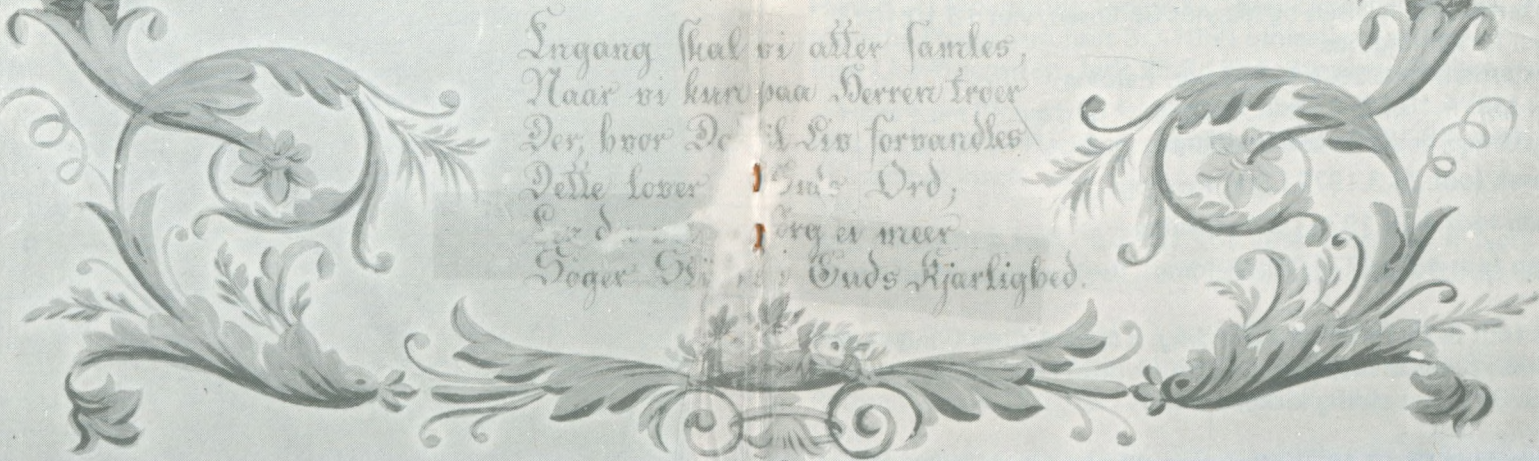 Engang skal vi atter samles,
Naar vi kun paa Herren troer
Der, hvor til Liv forvandles
Dette lover Guds Ord,
ei meer
Söger Guds Kjærlighed.